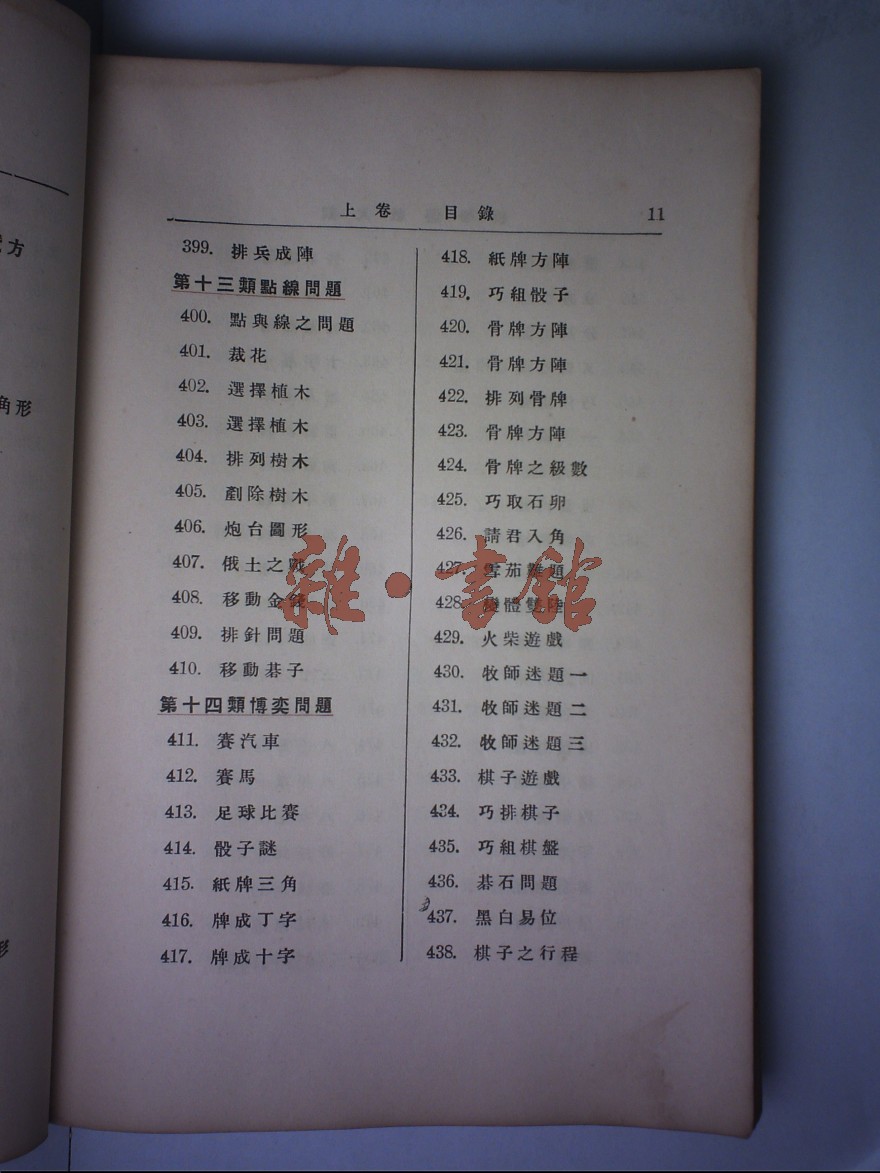 上卷 目錄 11
399. 排兵成陣
第十三類點線問題
400. 點與線之問題
401. 裁花
402. 選擇植木
403. 選擇植木
404. 排列樹木
405. 剷除樹木
406. 炮台圖形
407. 俄土之戰
408. 移動金錢
409. 排針問題
410. 移動碁子
第十四類博奕問題
411. 賽汽車
412. 賽馬
413. 足球比賽
414. 骰子謎
415. 紙牌三角
416. 牌成丁字
417. 牌成十字
418. 紙牌方陣
419. 巧組骰子
420. 骨牌方陣
421. 骨牌方陣
422. 排列骨牌
423. 骨牌方陣
424. 骨牌之級數
425. 巧取石卵
426. 請君入角
427. 雪茄難題
428. 變體雙陸
429. 火柴遊戲
430. 牧師迷題一
431. 牧師迷題二
432. 牧師迷題三
433. 棋子遊戲
434. 巧排棋子
435. 巧組棋盤
436. 碁石問題
437. 黑白易位
438. 棋子之行程
方
角形
形
雜·書館